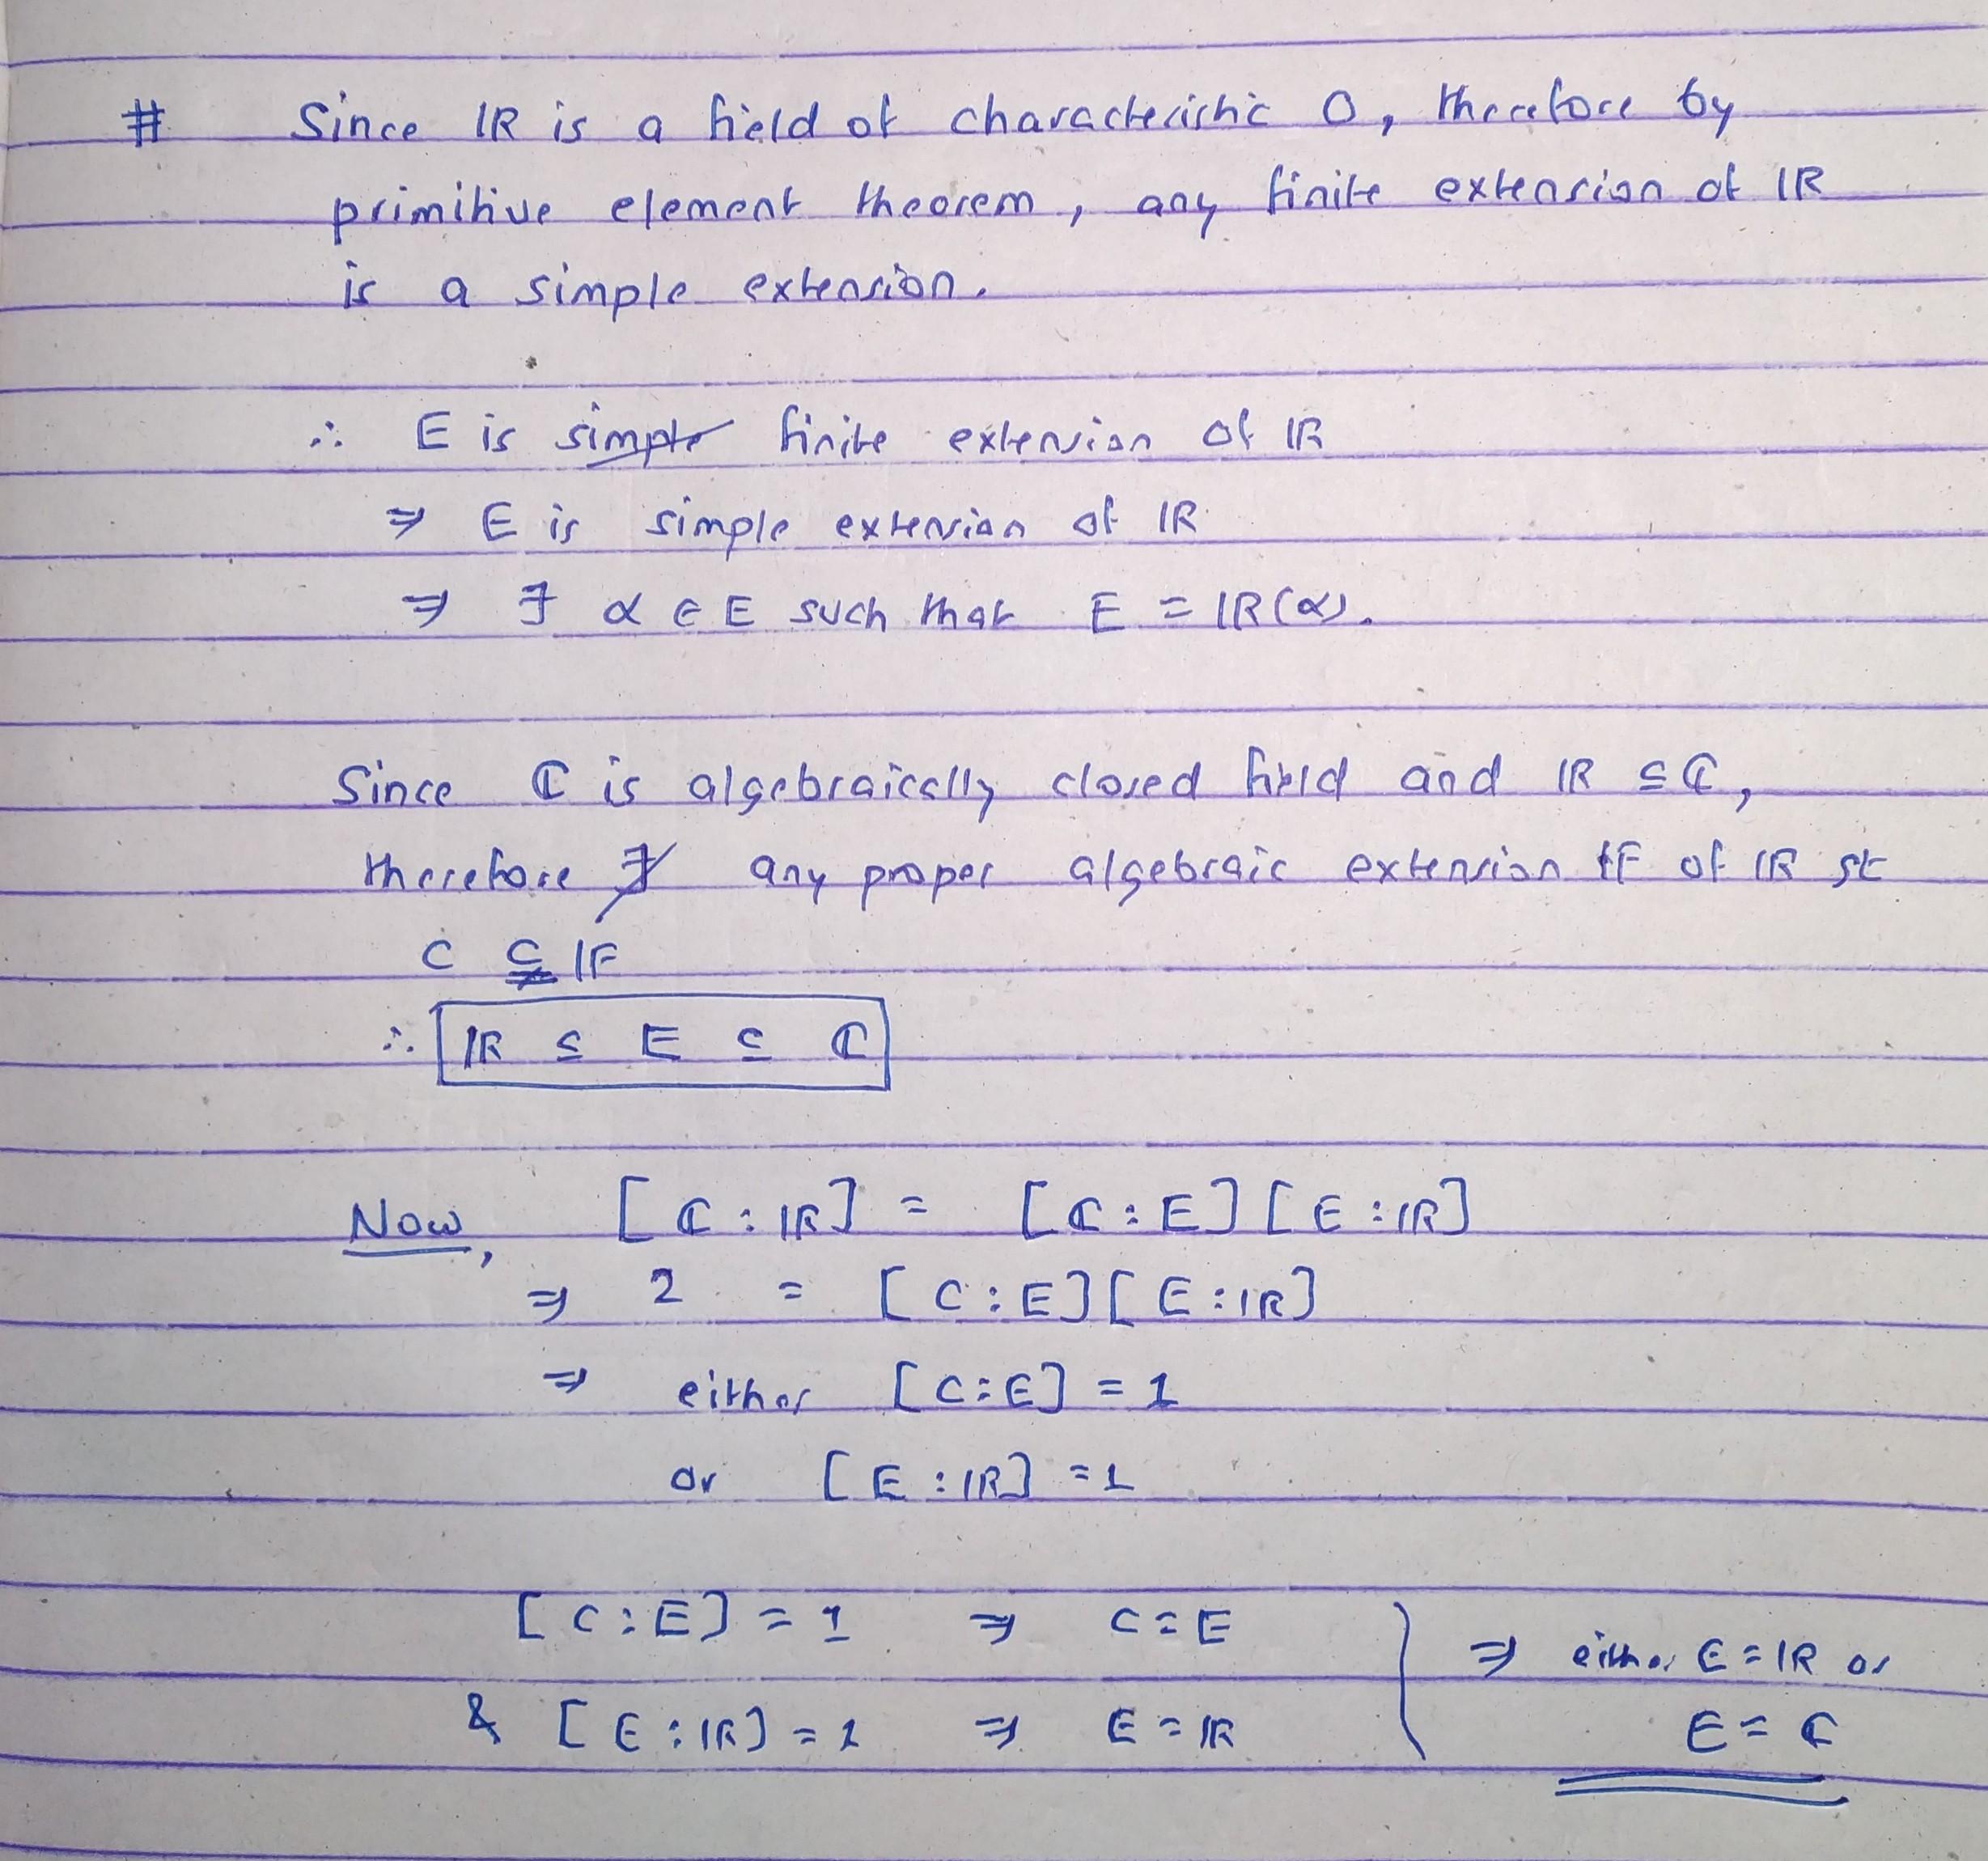 # Since IR is a field of characteristic 0, therefore by
primitive element theorem, any finite extension of IR
is a simple extension.
∴ E is simple finite extension of IR
⇒ E is simple extension of IR
⇒ ∃ α ∈ E such that E = IR(α).
Since ℂ is algebraically closed field and IR ⊆ ℂ,
therefore ∄ any proper algebraic extension IF of IR st
C ⊊ IF
∴ IR ⊆ E ⊆ ℂ
Now, [ℂ : IR] = [ℂ : E] [E : IR]
⇒ 2 = [C : E] [E : IR]
⇒ either [C : E] = 1
or [E : IR] = 1
[C : E] = 1 ⇒ C = E
& [E : IR] = 1 ⇒ E = IR
⇒ either E = IR or
E = ℂ